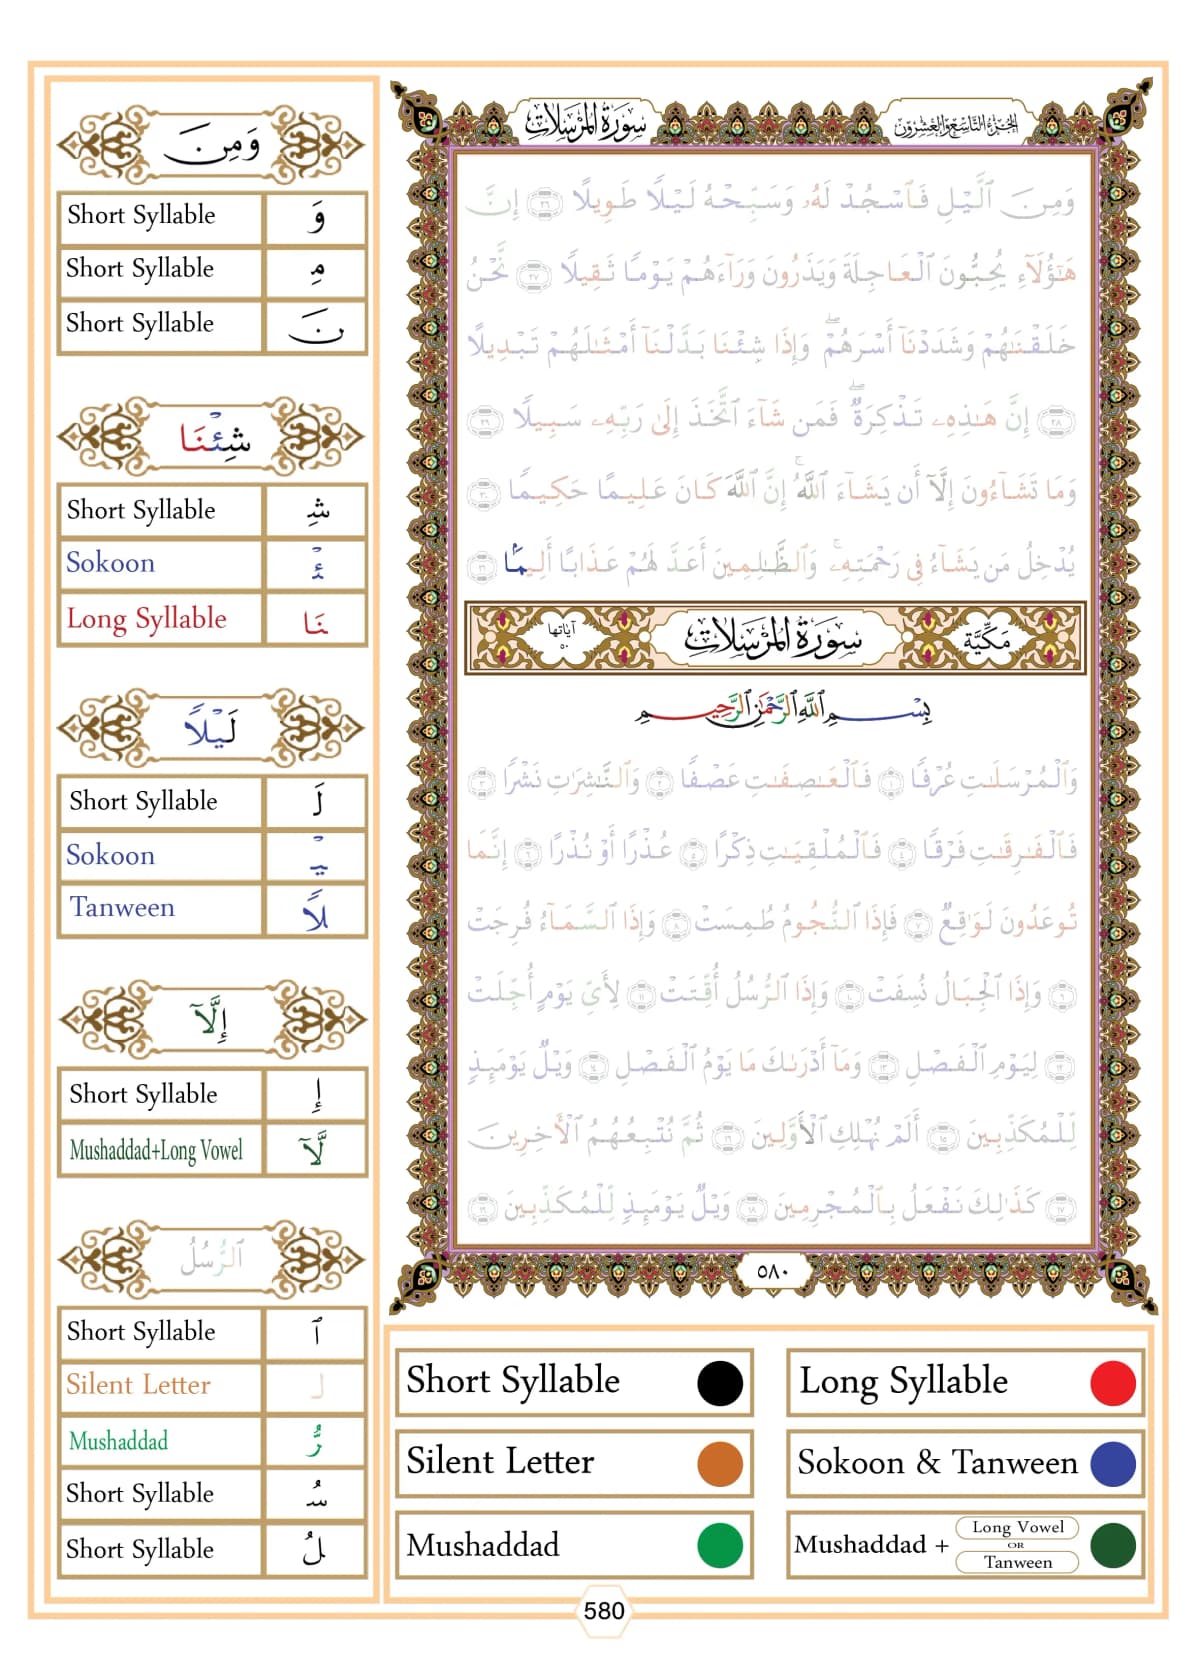 سورة المرسلات
الجزء التاسع والعشرون
وَمِنَ ٱلَّيْلِ فَٱسْجُدْ لَهُۥ وَسَبِّحْهُ لَيْلًا طَوِيلًا ٢٦ إِنَّ
هَٰٓؤُلَآءِ يُحِبُّونَ ٱلْعَاجِلَةَ وَيَذَرُونَ وَرَآءَهُمْ يَوْمًا ثَقِيلًا ٢٧ نَّحْنُ
خَلَقْنَٰهُمْ وَشَدَدْنَآ أَسْرَهُمْ ۖ وَإِذَا شِئْنَا بَدَّلْنَآ أَمْثَٰلَهُمْ تَبْدِيلًا
٢٨ إِنَّ هَٰذِهِۦ تَذْكِرَةٌ ۖ فَمَن شَآءَ ٱتَّخَذَ إِلَىٰ رَبِّهِۦ سَبِيلًا ٢٩
وَمَا تَشَآءُونَ إِلَّآ أَن يَشَآءَ ٱللَّهُ ۚ إِنَّ ٱللَّهَ كَانَ عَلِيمًا حَكِيمًا ٣٠
يُدْخِلُ مَن يَشَآءُ فِى رَحْمَتِهِۦ ۚ وَٱلظَّٰلِمِينَ أَعَدَّ لَهُمْ عَذَابًا أَلِيمًۢا ٣١
مَكِّيَّة
سورة المرسلات
آياتها ٥٠
بِسْمِ ٱللَّهِ ٱلرَّحْمَٰنِ ٱلرَّحِيمِ
وَٱلْمُرْسَلَٰتِ عُرْفًا ١ فَٱلْعَٰصِفَٰتِ عَصْفًا ٢ وَٱلنَّٰشِرَٰتِ نَشْرًا ٣
فَٱلْفَٰرِقَٰتِ فَرْقًا ٤ فَٱلْمُلْقِيَٰتِ ذِكْرًا ٥ عُذْرًا أَوْ نُذْرًا ٦ إِنَّمَا
تُوعَدُونَ لَوَٰقِعٌ ٧ فَإِذَا ٱلنُّجُومُ طُمِسَتْ ٨ وَإِذَا ٱلسَّمَآءُ فُرِجَتْ
٩ وَإِذَا ٱلْجِبَالُ نُسِفَتْ ١٠ وَإِذَا ٱلرُّسُلُ أُقِّتَتْ ١١ لِأَىِّ يَوْمٍ أُجِّلَتْ
١٢ لِيَوْمِ ٱلْفَصْلِ ١٣ وَمَآ أَدْرَىٰكَ مَا يَوْمُ ٱلْفَصْلِ ١٤ وَيْلٌ يَوْمَئِذٍ
لِّلْمُكَذِّبِينَ ١٥ أَلَمْ نُهْلِكِ ٱلْأَوَّلِينَ ١٦ ثُمَّ نُتْبِعُهُمُ ٱلْأَخِرِينَ
١٧ كَذَٰلِكَ نَفْعَلُ بِٱلْمُجْرِمِينَ ١٨ وَيْلٌ يَوْمَئِذٍ لِّلْمُكَذِّبِينَ ١٩
٥٨٠
وَمِنَ
Short Syllable وَ
Short Syllable مِ
Short Syllable نَ
شِئْنَا
Short Syllable شِ
Sokoon ئْ
Long Syllable نَا
لَيْلًا
Short Syllable لَ
Sokoon يْ
Tanween لًا
إِلَّآ
Short Syllable إِ
Mushaddad+Long Vowel لَّآ
ٱلرُّسُلُ
Short Syllable ٱ
Silent Letter ل
Mushaddad رُّ
Short Syllable سُ
Short Syllable لُ
Short Syllable
Long Syllable
Silent Letter
Sokoon & Tanween
Mushaddad
Mushaddad + Long Vowel OR Tanween
580